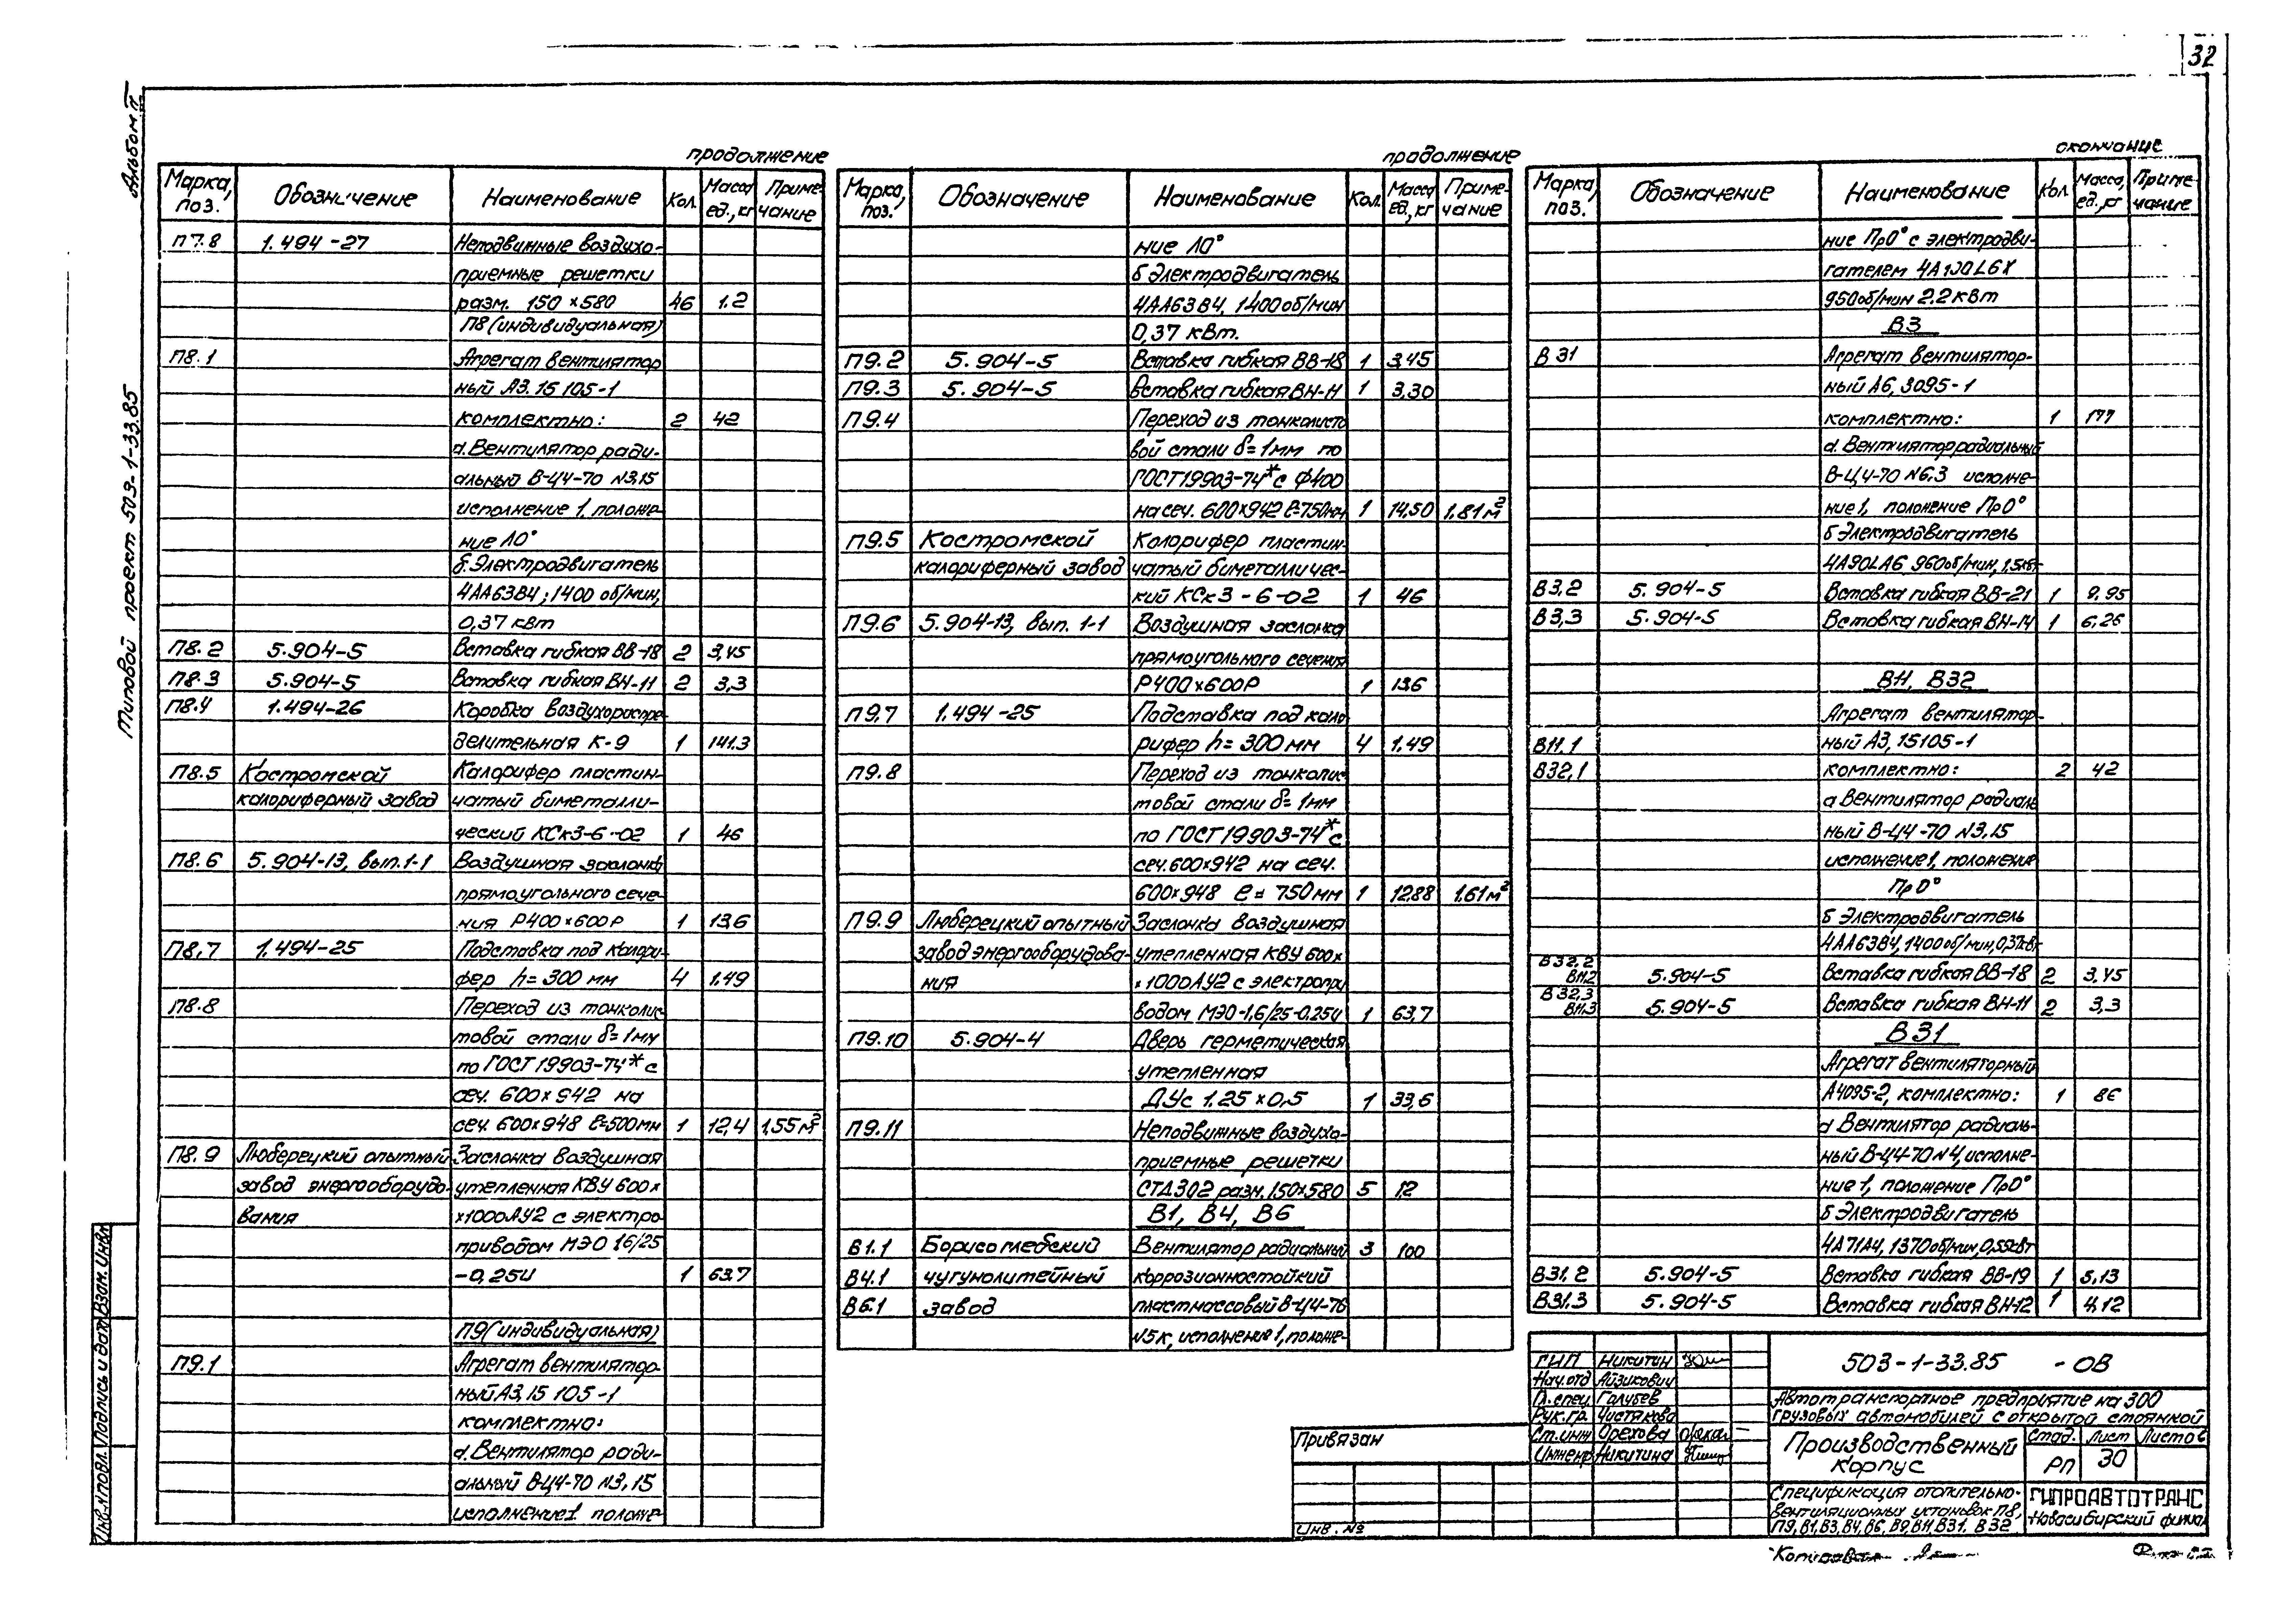 32
Альбом II
Типовой проект 503-1-33.85
продолжение
Марка, поз. Обозначение Наименование Кол. Масса ед., кг Примечание
П7.8 1.494-27 Неподвижные воздухо-
приемные решетки
разм. 150×580 46 1.2
П8 (индивидуальная)
П8.1 Агрегат вентилятор
ный А3.15 105-1
комплектно: 2 42
а. Вентилятор ради-
альный В-Ц4-70 N3,15
исполнение 1, положе-
ние Л0°
б. Электродвигатель
4АА63В4; 1400 об/мин,
0,37 кВт
П8.2 5.904-5 Вставка гибкая ВВ-18 2 3,45
П8.3 5.904-5 Вставка гибкая ВН-11 2 3,3
П8.4 1.494-26 Коробка воздухораспре-
делительная К-9 1 141.3
П8.5 Костромской Калорифер пластин-
калориферный завод чатый биметалли-
ческий КСк3-6-02 1 46
П8.6 5.904-13, вып.1-1 Воздушная заслонка
прямоугольного сече-
ния Р400×600Р 1 13,6
П8.7 1.494-25 Подставка под калори-
фер h=300 мм 4 1.49
П8.8 Переход из тонколис
товой стали δ=1мм
по ГОСТ 19903-74* с
сеч. 600×942 на
сеч. 600×948 ℓ=500мм 1 12,4 1,55м²
П8.9 Люберецкий опытный Заслонка воздушная
завод энергооборудо- утепленная КВУ 600×
вания ×1000АУ2 с электро-
приводом МЭО 16/25
-0,25И 1 63.7
П9 (индивидуальная)
П9.1 Агрегат вентилято-
ный А3,15 105-1
комплектно:
а. Вентилятор ради-
альный В-Ц4-70 N3,15
исполнение1 положе-
продолжение
Марка, поз. Обозначение Наименование Кол. Масса ед., кг Примечание
ние Л0°
б Электродвигатель
4АА63В4, 1400 об/мин
0,37 кВт.
П9.2 5.904-5 Вставка гибкая ВВ-18 1 3,45
П9.3 5.904-5 Вставка гибкая ВН-11 1 3,30
П9.4 Переход из тонколисто
вой стали δ=1мм по
ГОСТ19903-74* с Ф400
на сеч. 600×942 ℓ=750мм 1 14,50 1,81м²
П9.5 Костромской Калорифер пластин-
калориферный завод чатый биметалличес-
кий КСк3-6-02 1 46
П9.6 5.904-13, вып. 1-1 Воздушная заслонка
прямоугольного сечения
Р400×600Р 1 13.6
П9.7 1.494-25 Подставка под кало
рифер h=300 мм 4 1.49
П9.8 Переход из тонколис
товой стали δ=1мм
по ГОСТ19903-74* с
сеч.600×942 на сеч.
600×948 ℓ=750мм 1 12.88 1,61м²
П9.9 Люберецкий опытный Заслонка воздушная
завод энергооборудова- утепленная КВУ 600×
ния ×1000АУ2 с электропри
водом МЭО-1,6/25-0.25И 1 63,7
П9.10 5.904-4 Дверь герметическая
утепленная
ДУс 1.25×0,5 1 33,6
П9.11 Неподвижные воздухо-
приемные решетки
СТД302 разм. 150×580 5 1,2
В1, В4, В6
В1.1 Борисоглебский Вентилятор радиальный 3 100
В4.1 чугунолитейный коррозионностойкий
В6.1 завод пластмассовый В-Ц4-76
N5к, исполнения 1, положе-
окончание
Марка, поз. Обозначение Наименование Кол. Масса, ед., кг Примечание
ние Пр0° с электродви-
гателем 4А100L6У
950об/мин 2.2кВт
В3
В31 Агрегат вентилятор-
ный А6,3095-1
комплектно: 1 177
а. Вентилятор радиальный
В-Ц4-70 N6.3 исполне-
ние 1, положение Пр0°
б Электродвигатель
4А90LА6 960об/мин, 1,5кВт
В3.2 5.904-5 Вставка гибкая ВВ-21 1 9,95
В3,3 5.904-5 Вставка гибкая ВН-14 1 6.26
В11, В32
Агрегат вентилятор-
В11.1 ный А3,15105-1
В32.1 комплектно: 2 42
а Вентилятор радиаль
ный В-Ц4-70 N3,15
исполнение1, положение
Пр0°
б Электродвигатель
4АА63В4, 1400об/мин, 0,37кВт
В32.2
В11.2 5.904-5 Вставка гибкая ВВ-18 2 3,45
В32,3
В11.3 5.904-5 Вставка гибкая ВН-11 2 3,3
В31
Агрегат вентиляторный
А4095-2, комплектно: 1 86
а Вентилятор радиаль-
ный В-Ц4-70 N4, исполне-
ние 1, положение Пр0°
б Электродвигатель
4А71А4, 1370об/мин, 0,55кВт
В31.2 5.904-5 Вставка гибкая ВВ-19 1 5,13
В31.3 5.904-5 Вставка гибкая ВН-12 1 4.12
ГИП Никитин
Нач.отд Айзикович
Гл.спец Голубев
Рук.гр. Чистякова
Ст.инж Орехова
Инженр Никитина
503-1-33.85 -ОВ
Автотранспортное предприятие на 300
грузовых автомобилей с открытой стоянкой
Производственный корпус
Стад. Лист Листов
РП 30
Спецификация отопительно-
вентиляционных установок П8,
П9, В1, В3, В4, В6, В9, В11, В31, В32
ГИПРОАВТОТРАНС
Новосибирский филиал
Привязан
Инв. №
Инв.№подл. Подпись и дата Взам. инв.№
Копировал